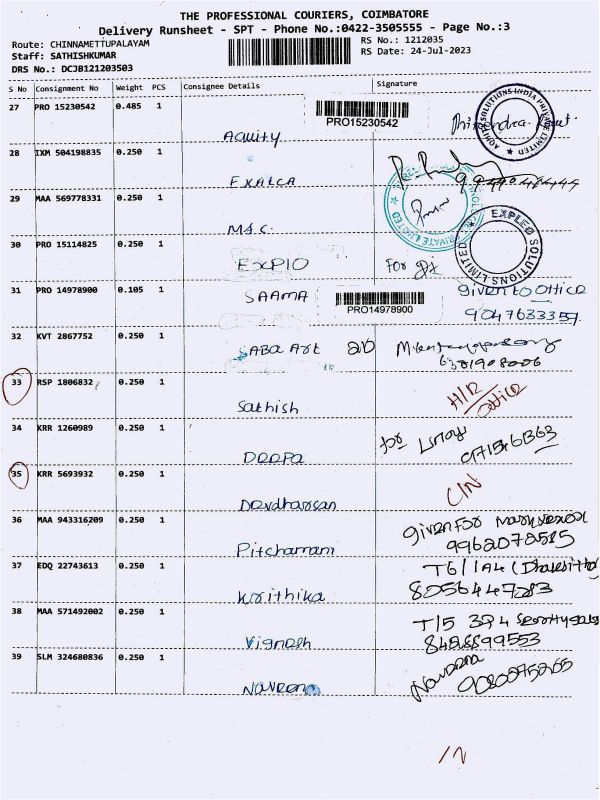 THE PROFESSIONAL COURIERS, COIMBATORE
Delivery Runsheet - SPT - Phone No.:0422-3505555 - Page No.:3
Route: CHINNAMETTUPALAYAM
RS No.: 1212035
Staff: SATHISHKUMAR
RS Date: 24-Jul-2023
DRS No.: DCJB121203503
S No Consignment No Weight PCS Consignee Details Signature
27 PRO 15230542 0.485 1
PRO15230542
Aquity
28 IXM 504198835 0.250 1
EXALCA
29 MAA 569778331 0.250 1
M.S.C.
30 PRO 15114825 0.250 1
EXPLEO SOLUTIONS LIMITED
EXPIO
For
31 PRO 14978900 0.105 1
SAAMA
PRO14978900
given to office
9047633359
32 KVT 2867752 0.250 1
SABA Art
33 RSP 1806832 0.250 1
Sathish
office
34 KRR 1260989 0.250 1
for
DEEPA
35 KRR 5693932 0.250 1
Devdharsan
36 MAA 943316209 0.250 1
given for
Pitchamani
9962078515
37 EDQ 22743613 0.250 1
Krithika
8056447283
38 MAA 571492002 0.250 1
Vignesh
8428899553
39 SLM 324680836 0.250 1
Naveena
Naveena